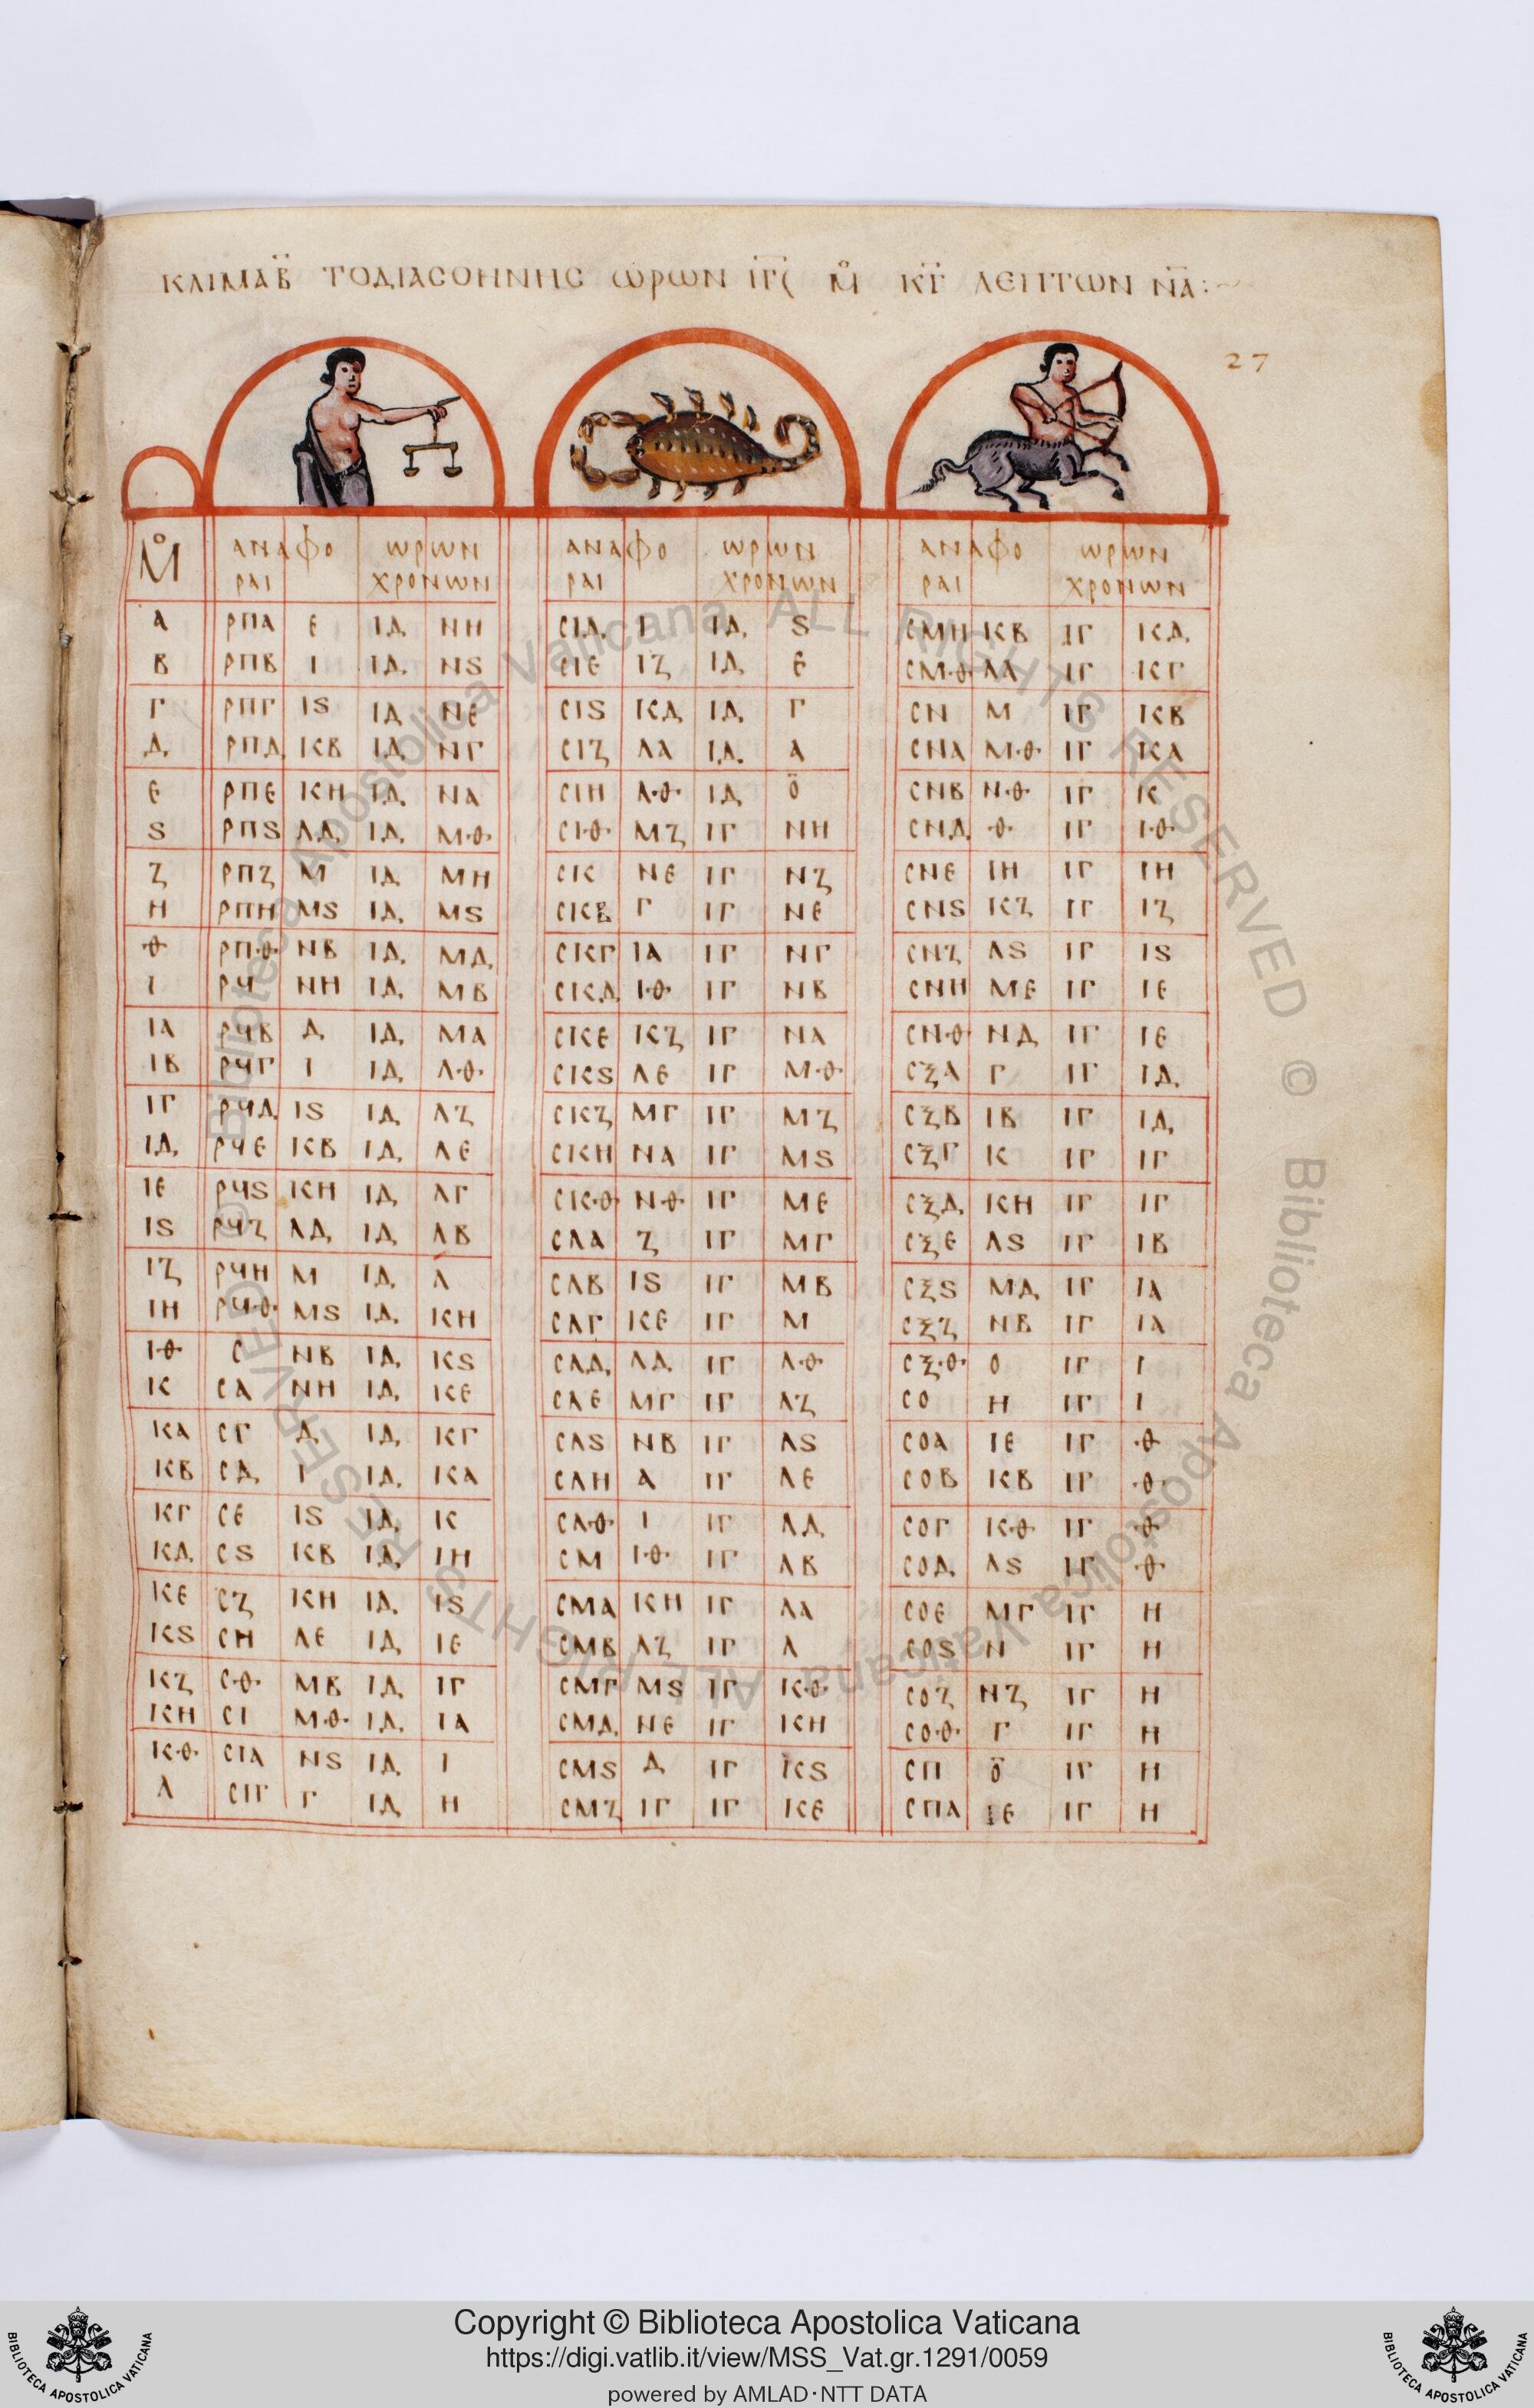 ΚΛΙΜΑ Β̈ ΤΟ ΔΙΑ ΣΟΗΝΗΣ ΩΡΩΝ ΙΓ̅ϛ Μ̊ Κ̅Γ̅ ΛΕΠΤΩΝ Ν̅Α̅:~
27
Μ̊ ΑΝΑΦΟ ΩΡΩΝ ΑΝΑΦΟ ΩΡΩΝ ΑΝΑΦΟ ΩΡΩΝ
ΡΑΙ ΧΡΟΝΩΝ ΡΑΙ ΧΡΟΝΩΝ ΡΑΙ ΧΡΟΝΩΝ
Α ΡΠΑ Ε ΙΔ ΝΗ ΣΙΔ Ι ΙΔ Ϛ ΣΜΗ ΚΒ ΙΓ ΚΔ
Β ΡΠΒ Ι ΙΔ ΝϚ ΣΙΕ ΙΖ ΙΔ Ε ΣΜΘ ΛΑ ΙΓ ΚΓ
Γ ΡΠΓ ΙϚ ΙΔ ΝΕ ΣΙϚ ΚΔ ΙΔ Γ ΣΝ Μ ΙΓ ΚΒ
Δ ΡΠΔ ΚΒ ΙΔ ΝΓ ΣΙΖ ΛΑ ΙΔ Α ΣΝΑ ΜΘ ΙΓ ΚΑ
Ε ΡΠΕ ΚΗ ΙΔ ΝΑ ΣΙΗ ΛΘ ΙΔ Ο̈ ΣΝΒ ΝΘ ΙΓ Κ
Ϛ ΡΠϚ ΛΔ ΙΔ ΜΘ ΣΙΘ ΜΖ ΙΓ ΝΗ ΣΝΔ Θ ΙΓ ΙΘ
Ζ ΡΠΖ Μ ΙΔ ΜΗ ΣΚ ΝΕ ΙΓ ΝΖ ΣΝΕ ΙΗ ΙΓ ΙΗ
Η ΡΠΗ ΜϚ ΙΔ ΜϚ ΣΚΒ Γ ΙΓ ΝΕ ΣΝϚ ΚΖ ΙΓ ΙΖ
Θ ΡΠΘ ΝΒ ΙΔ ΜΔ ΣΚΓ ΙΑ ΙΓ ΝΓ ΣΝΖ ΛϚ ΙΓ ΙϚ
Ι ΡϞ ΝΗ ΙΔ ΜΒ ΣΚΔ ΙΘ ΙΓ ΝΒ ΣΝΗ ΜΕ ΙΓ ΙΕ
ΙΑ ΡϞΒ Δ ΙΔ ΜΑ ΣΚΕ ΚΖ ΙΓ ΝΑ ΣΝΘ ΝΔ ΙΓ ΙΕ
ΙΒ ΡϞΓ Ι ΙΔ ΛΘ ΣΚϚ ΛΕ ΙΓ ΜΘ ΣΞΑ Γ ΙΓ ΙΔ
ΙΓ ΡϞΔ ΙϚ ΙΔ ΛΖ ΣΚΖ ΜΓ ΙΓ ΜΖ ΣΞΒ ΙΒ ΙΓ ΙΔ
ΙΔ ΡϞΕ ΚΒ ΙΔ ΛΕ ΣΚΗ ΝΑ ΙΓ ΜϚ ΣΞΓ Κ ΙΓ ΙΓ
ΙΕ ΡϞϚ ΚΗ ΙΔ ΛΓ ΣΚΘ ΝΘ ΙΓ ΜΕ ΣΞΔ ΚΗ ΙΓ ΙΓ
ΙϚ ΡϞΖ ΛΔ ΙΔ ΛΒ ΣΛΑ Ζ ΙΓ ΜΓ ΣΞΕ ΛϚ ΙΓ ΙΒ
ΙΖ ΡϞΗ Μ ΙΔ Λ ΣΛΒ ΙϚ ΙΓ ΜΒ ΣΞϚ ΜΔ ΙΓ ΙΑ
ΙΗ ΡϞΘ ΜϚ ΙΔ ΚΗ ΣΛΓ ΚΕ ΙΓ Μ ΣΞΖ ΝΒ ΙΓ ΙΑ
ΙΘ Σ ΝΒ ΙΔ ΚϚ ΣΛΔ ΛΔ ΙΓ ΛΘ ΣΞΘ Ο ΙΓ Ι
Κ ΣΑ ΝΗ ΙΔ ΚΕ ΣΛΕ ΜΓ ΙΓ ΛΖ ΣΟ Η ΙΓ Ι
ΚΑ ΣΓ Δ ΙΔ ΚΓ ΣΛϚ ΝΒ ΙΓ ΛϚ ΣΟΑ ΙΕ ΙΓ Θ
ΚΒ ΣΔ Ι ΙΔ ΚΑ ΣΛΗ Α ΙΓ ΛΕ ΣΟΒ ΚΒ ΙΓ Θ
ΚΓ ΣΕ ΙϚ ΙΔ Κ ΣΛΘ Ι ΙΓ ΛΔ ΣΟΓ ΚΘ ΙΓ Θ
ΚΔ ΣϚ ΚΒ ΙΔ ΙΗ ΣΜ ΙΘ ΙΓ ΛΒ ΣΟΔ ΛϚ ΙΓ Θ
ΚΕ ΣΖ ΚΗ ΙΔ ΙϚ ΣΜΑ ΚΗ ΙΓ ΛΑ ΣΟΕ ΜΓ ΙΓ Η
ΚϚ ΣΗ ΛΕ ΙΔ ΙΕ ΣΜΒ ΛΖ ΙΓ Λ ΣΟϚ Ν ΙΓ Η
ΚΖ ΣΘ ΜΒ ΙΔ ΙΓ ΣΜΓ ΜϚ ΙΓ ΚΘ ΣΟΖ ΝΖ ΙΓ Η
ΚΗ ΣΙ ΜΘ ΙΔ ΙΑ ΣΜΔ ΝΕ ΙΓ ΚΗ ΣΟΘ Γ ΙΓ Η
ΚΘ ΣΙΑ ΝϚ ΙΔ Ι ΣΜϚ Δ ΙΓ ΚϚ ΣΠ Ο̈ ΙΓ Η
Λ ΣΙΓ Γ ΙΔ Η ΣΜΖ ΙΓ ΙΓ ΚΕ ΣΠΑ ΙΕ ΙΓ Η
© Biblioteca Apostolica Vaticana ALL RIGHTS RESERVED
Copyright © Biblioteca Apostolica Vaticana
https://digi.vatlib.it/view/MSS_Vat.gr.1291/0059
powered by AMLAD·NTT DATA
BIBLIOTECA APOSTOLICA VATICANA
BIBLIOTECA APOSTOLICA VATICANA